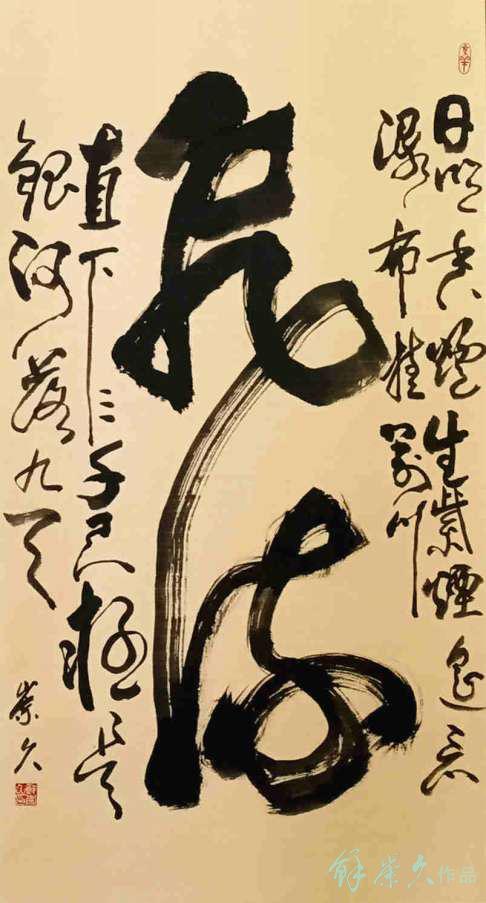 日照香爐生紫煙遙看
瀑布掛前川
飛流
直下三千尺疑是
銀河落九天
崇久
崇久作品